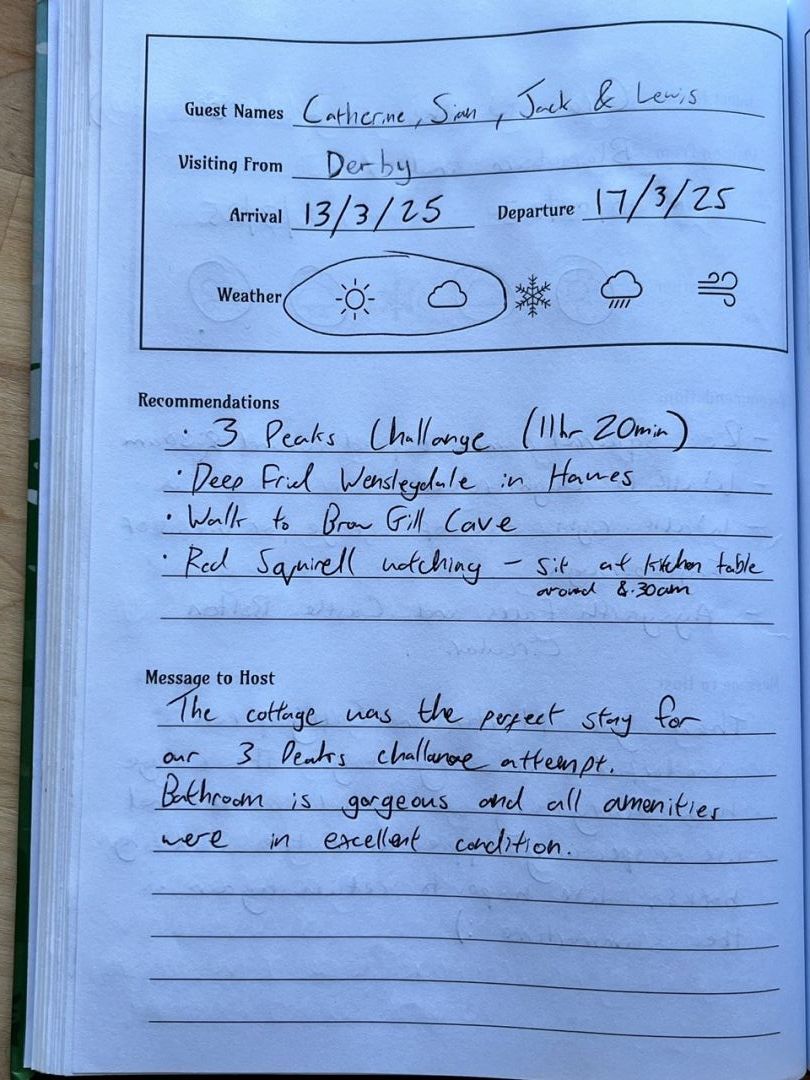 Guest Names Catherine, Sian, Jack & Lewis
Visiting From Derby
Arrival 13/3/25 Departure 17/3/25
Weather
Recommendations
· 3 Peaks Challange (11hr 20min)
· Deep Fried Wensleydale in Hawes
· Walk to Brow Gill Cave
· Red Squirell watching - sit at kitchen table
around 8.30am
Message to Host
The cottage was the perfect stay for
our 3 Peaks challange attempt.
Bathroom is gorgeous and all amenities
were in excellent condition.